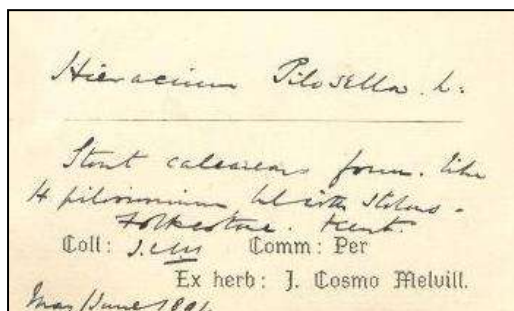 Hieracium Pilosella. L.
Stout calcareous form. like
H pilosissimum but with stolons -
Folkestone. Kent.
Coll: J.C.M Comm: Per
Ex herb: J. Cosmo Melvill.
May/June